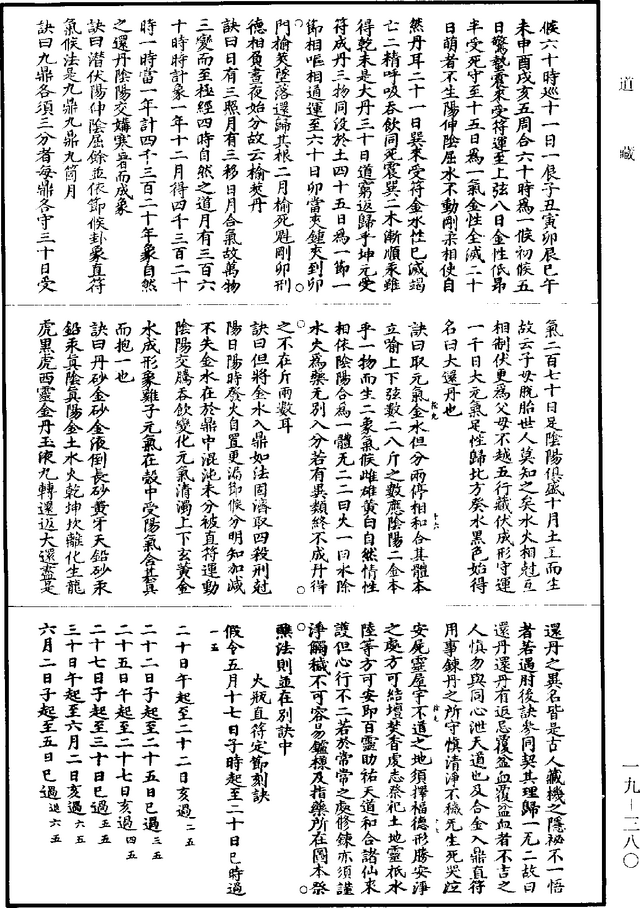 候六十時巡十一日一辰子丑寅卯辰巳午
未申酉戌亥五周合六十時為一候初候五
日驚蟄震來受符運至上弦八日金性低昂
半受死守至十五日為一氣金性全滅二十
日萌者不生陽伸陰屈水不動剛柔相使自
然丹耳二十一日巽來受符金水性已滅竭
亡二精呼吸吞飲同死震巽二木漸順乘雖
得乾未是大丹三十日道窮返歸乎坤元受
符成丹三物同沒於土四十五日為一節一
節相嘔相過運至六十日卯當夾鍾夾到卯
門榆莢墜落還歸其根二月榆死魁剛卯刑
德相負晝夜始分故云榆莢丹
訣曰日有三照月有三移日月合氣故萬物
三變而至極經四時自然之道月有三百六
十時將計象一年十二月得四千三百二十
時一時當一年計四千三百二十年象自然
之還丹陰陽交媾寒暑而成象
訣曰潛伏陽伸陰屈餘並依節候卦象直符
氣候法是九鼎九鼎九箇月
訣曰九鼎各須三分者每鼎各守三十日受
氣二百七十日足陰陽俱盛十月土王而生
故云子母脫胎世人莫知之矣水火相尅互
相制伏更為父母不越五行藏伏成形守運
一千日大元氣足性歸北方癸水黑色始得
名曰大還丹也
訣曰取元氣金水但分兩停相和合其體本
立喻上下弦數二八斤之數應陰陽二金本
乎一物而生二象氣候雌雄黃白自然情性
相依陰陽合為一體无二二曰火一曰水除
水火為藥无別入分若有異類終不成丹得
之不在斤兩數耳
訣曰但將金水入鼎如法固濟取四殺刑尅
陽日陽時發火自置更漏節候分明知加減
不失金水在於鼎中混沌未分被直符運動
陰陽交騰吞飲變化元氣清濁上下玄黃金
水成形象雞子元氣在殼中受陽氣含其真
而抱一也
訣曰丹砂金砂金液倒長砂黃牙天鉛砂汞
鉛汞真陰真陽金土水火乾坤坎離化生龍
虎黑虎西靈金丹玉液九轉還返大還盡是
還丹之異名皆是古人藏機之隱祕不一悟
者若遇肘後訣參同契其理歸一无二故曰
還丹還丹有返忌覆盆血覆盆血者不吉之
人慎勿與同心泄天道也及合金入鼎直符
用事鍊丹之所守慎清淨不穢先生死哭泣
安屍靈屋宇不道之地須擇福德形勝安淨
之處方可結壇焚香虔志祭祀土地靈祇水
陸等方可安即百靈助祐天道和合諸仙來
護但心行不二若於常常之處修鍊亦須謹
淨觸穢不可容易鑪樣及指藥所在圖本祭
醮法則並在別訣中
火瓶直符定節刻訣
假令五月十七日子時起至二十日巳時過
一五
二十日午起至二十二日亥過二五
二十二日子起至二十五日巳過三五
二十五日午起至二十七日亥過四五
二十七日子起至三十日巳過五五
三十日午起至六月二日亥過六五
六月二日子起至五日巳過退六五
道藏
一九-三八〇